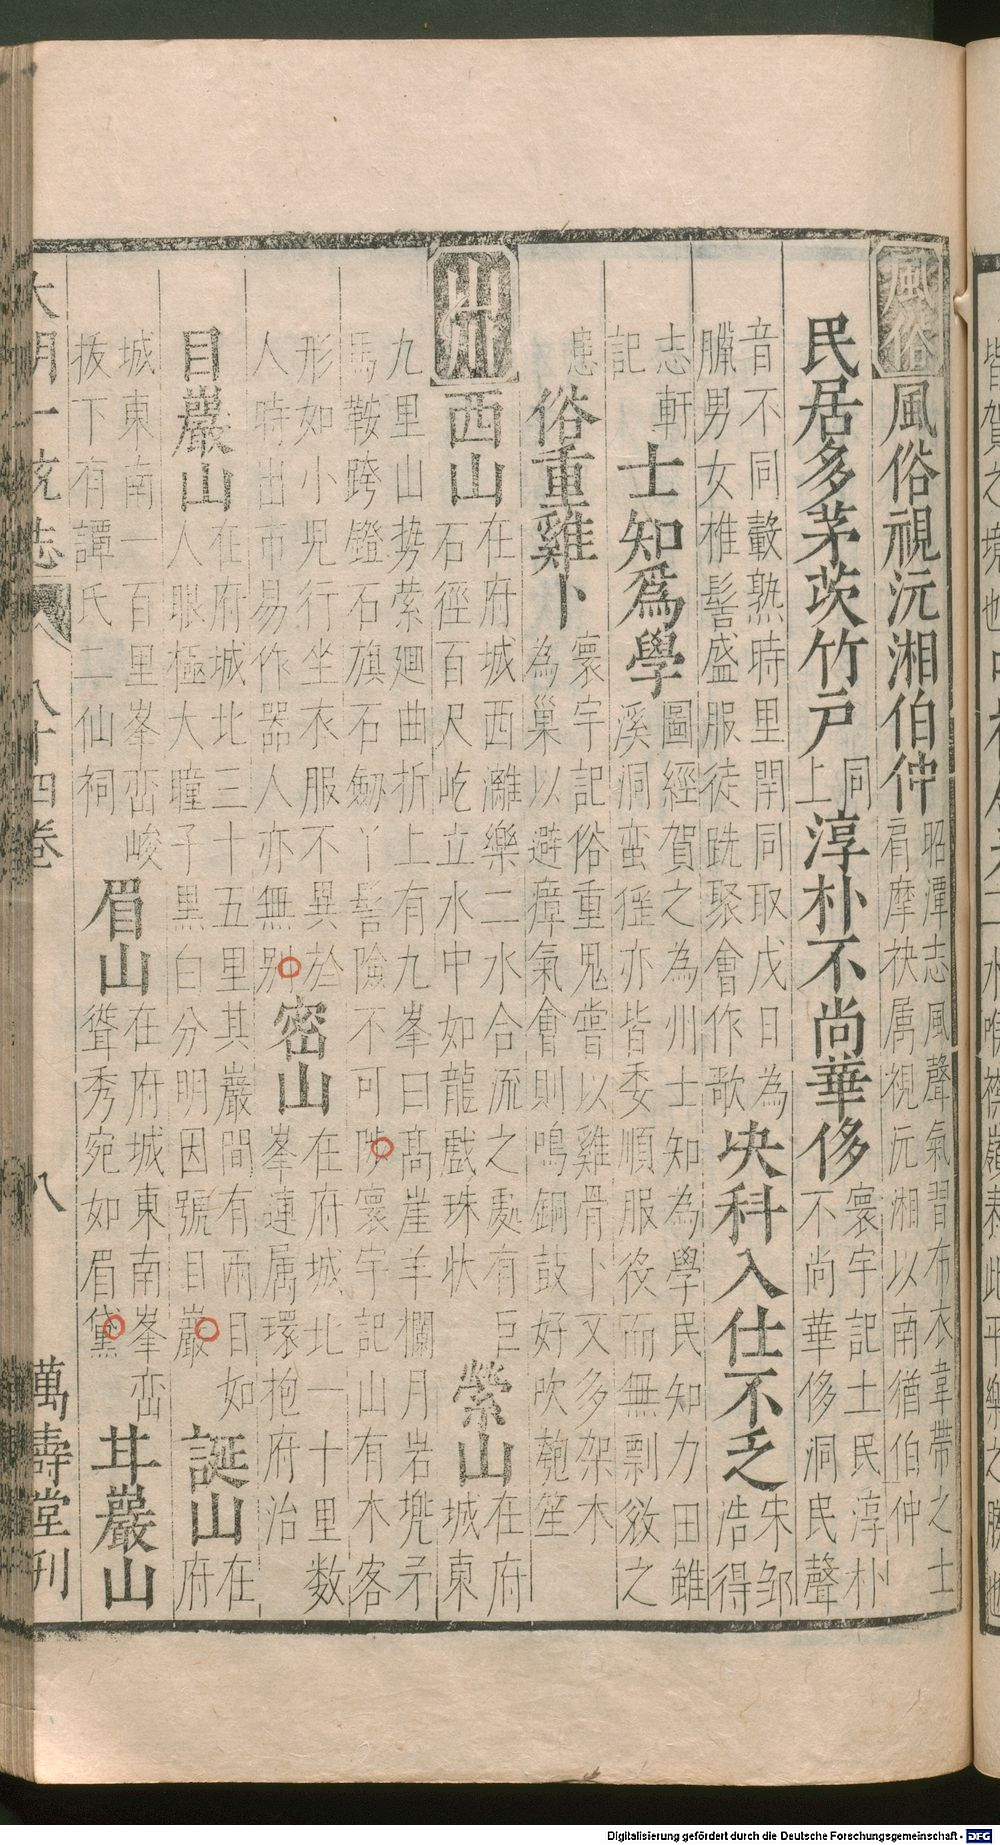 風俗 風俗視沅湘伯仲 昭潭志風聲氣習布衣韋帶之士
肩摩袂屬視沅湘以南猶伯仲
民居多茅茨竹戶 同上 淳朴不尚華侈 寰宇記土民淳朴
不尚華侈洞民聲
音不同穀熟時里閈同取戊日為
臘男女椎髻盛服徒跣聚會作歌 决科入仕不乏 宋邹
浩得
志軒
記 士知為學 圖經賀之為州士知為學民知力田雖
溪洞蛮猺亦皆委順服役而無剽敓之
患 俗重雞卜 寰宇記俗重鬼嘗以雞骨卜又多架木
為巢以避瘴氣會則鳴銅鼓好吹匏笙
山川 西山 在府城西灕樂二水合流之處有巨
石徑百尺屹立水中如龍戲珠状 縈山 在府
城東
九里山势縈廻曲折上有九峯曰高崖羊欄月岩兠矛
馬鞍跨鐙石旗石劒丫髻險不可陟寰宇記山有木客
形如小児行坐衣服不異於
人時出市易作器人亦無别 密山 在府城北一十里数
峯連属環抱府治
目巖山 在府城北三十五里其巖間有兩目如
人眼極大瞳子黒白分明因號目巖 誕山 在
府
城東南一百里峯峦峻
拔下有譚氏二仙祠 眉山 在府城東南峯峦
聳秀宛如眉黛 巖山
大明一統志 八十四卷 八 萬壽堂刊
Digitalisierung gefördert durch die Deutsche Forschungsgemeinschaft - DFG